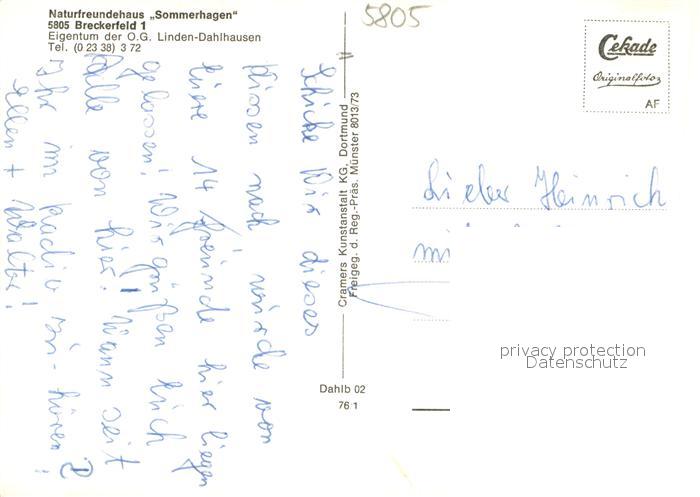 Naturfreundehaus „Sommerhagen"
5805 Breckerfeld 1
Eigentum der O.G. Linden-Dahlhausen
Tel. (0 23 38) 3 72
5805
Cekade
Originalfoto
AF
Schicke Dir dieses
Kissen nach wurde von
eure 14 Freunde hier liegen
gelassen! Wir grüßen Euch
alle von hier! Wann seit
Ihr im Radio zu hören?
Ellen + Walter!
Cramers Kunstanstalt KG, Dortmund
Freigeg. d. Reg.-Präs. Münster 8013/73
Lieber Heinrich
mi
Dahlb 02
76 1
privacy protection
Datenschutz